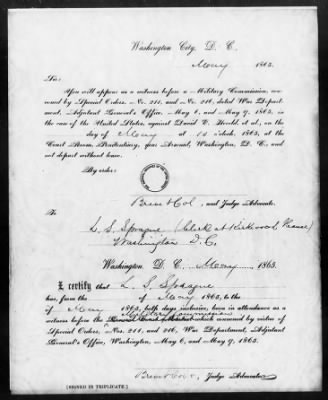 Washington City, D. C.
May 1865.
Sir:
You will appear as a witness before a Military Commission, con-
vened by Special Orders, Nos. 211, and No. 216, dated War Depart-
ment, Adjutant General's Office, May 6, and May 9, 1865, in
the case of the United States, against David E. Herold, et al., on the
day of May at 10 o'clock, 1865, at the
Court Room, Penitentiary, near Arsenal, Washington, D. C., and
not depart without leave.
By order:
Brev't Col, and Judge Advocate.
To
L. S. Sprague (Clerk at Kirkwood House)
Washington D. C.
Washington, D. C., May 1865.
I certify that L. S. Sprague
has, from the of May 1865, to the
of May 1865, both days inclusive, been in attendance as a
witness before the Military Commission which convened by virtue of
Special Orders, Nos. 211, and 216, War Department, Adjutant
General's Office, Washington, May 6, and May 9, 1865.
Brev't Col, Judge Advocate
[SIGNED IN TRIPLICATE.]